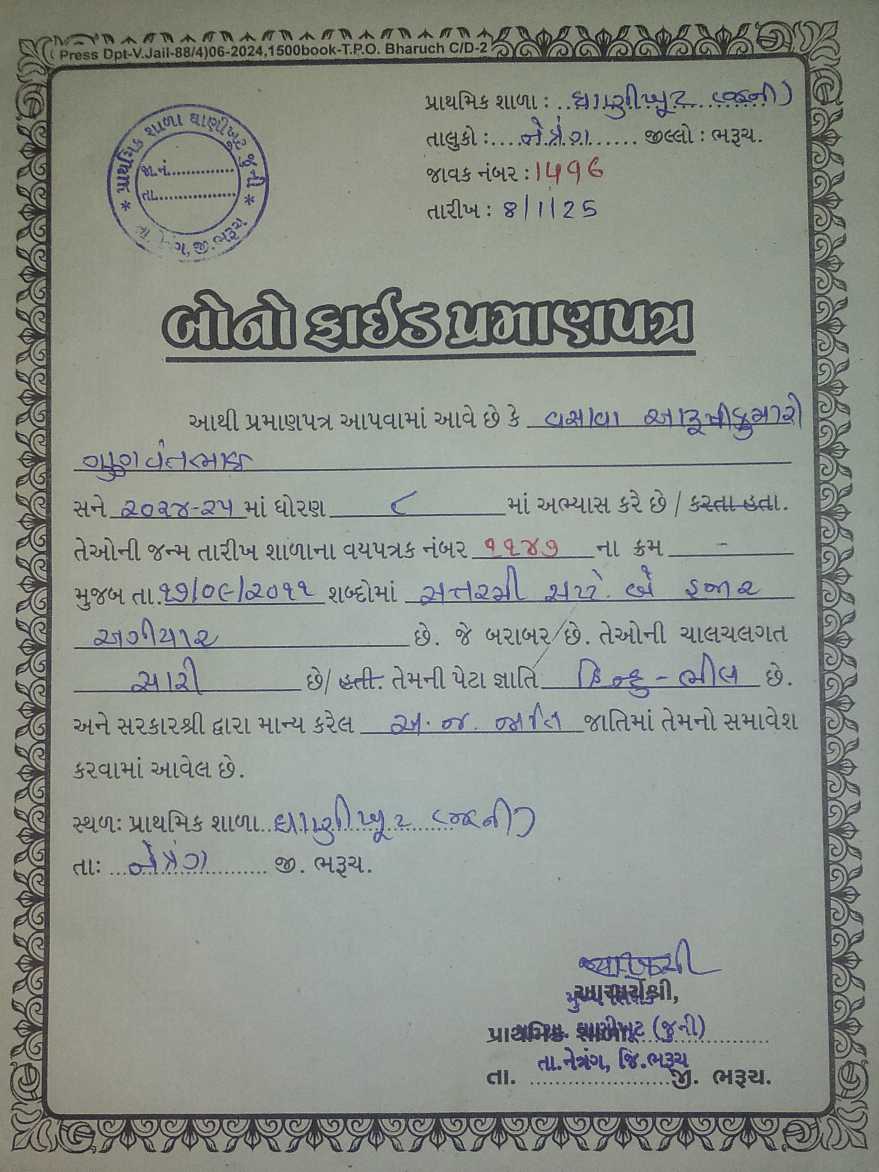 ( Press Dpt-V.Jail-88/4)06-2024,1500book-T.P.O. Bharuch C/D-2
પ્રાથમિક શાળા : ..ધાણીખૂટ (જુની)
તાલુકો :....નેત્રંગ...... જીલ્લો : ભરૂચ.
જાવક નંબર : 1496
તારીખ : 8/1/25
પ્રાથમિક શાળા ધાણીખૂટ જુની
જા.નં...............
તા..................
જી.ભરૂચ
બોનોફાઈડ પ્રમાણપત્ર
આથી પ્રમાણપત્ર આપવામાં આવે છે કે વસાવા આરૂષીકુમારી
ગુણવંતભાઇ
સને ૨૦૨૪-૨૫ માં ધોરણ ૮ માં અભ્યાસ કરે છે / કરતા હતા.
તેઓની જન્મ તારીખ શાળાના વયપત્રક નંબર ૧૧૪૭ ના ક્રમ -
મુજબ તા.૧૭/૦૯/૨૦૧૧ શબ્દોમાં સત્તરમી સપ્ટે. બે હજાર
અગીયાર છે. જે બરાબર છે. તેઓની ચાલચલગત
સારી છે/ હતી. તેમની પેટા જ્ઞાતિ હિન્દુ - ભીલ છે.
અને સરકારશ્રી દ્વારા માન્ય કરેલ અ. જ. જાતિ જાતિમાં તેમનો સમાવેશ
કરવામાં આવેલ છે.
સ્થળઃ પ્રાથમિક શાળા..ધાણીખૂટ (જુની)
તાઃ ...નેત્રંગ.......... જી. ભરૂચ.
આચાર્યશ્રી,
પ્રાથમિક શાળા ધાણીખૂટ (જુની)
તા.નેત્રંગ, જિ.ભરૂચ
તા. ...................જી. ભરૂચ.